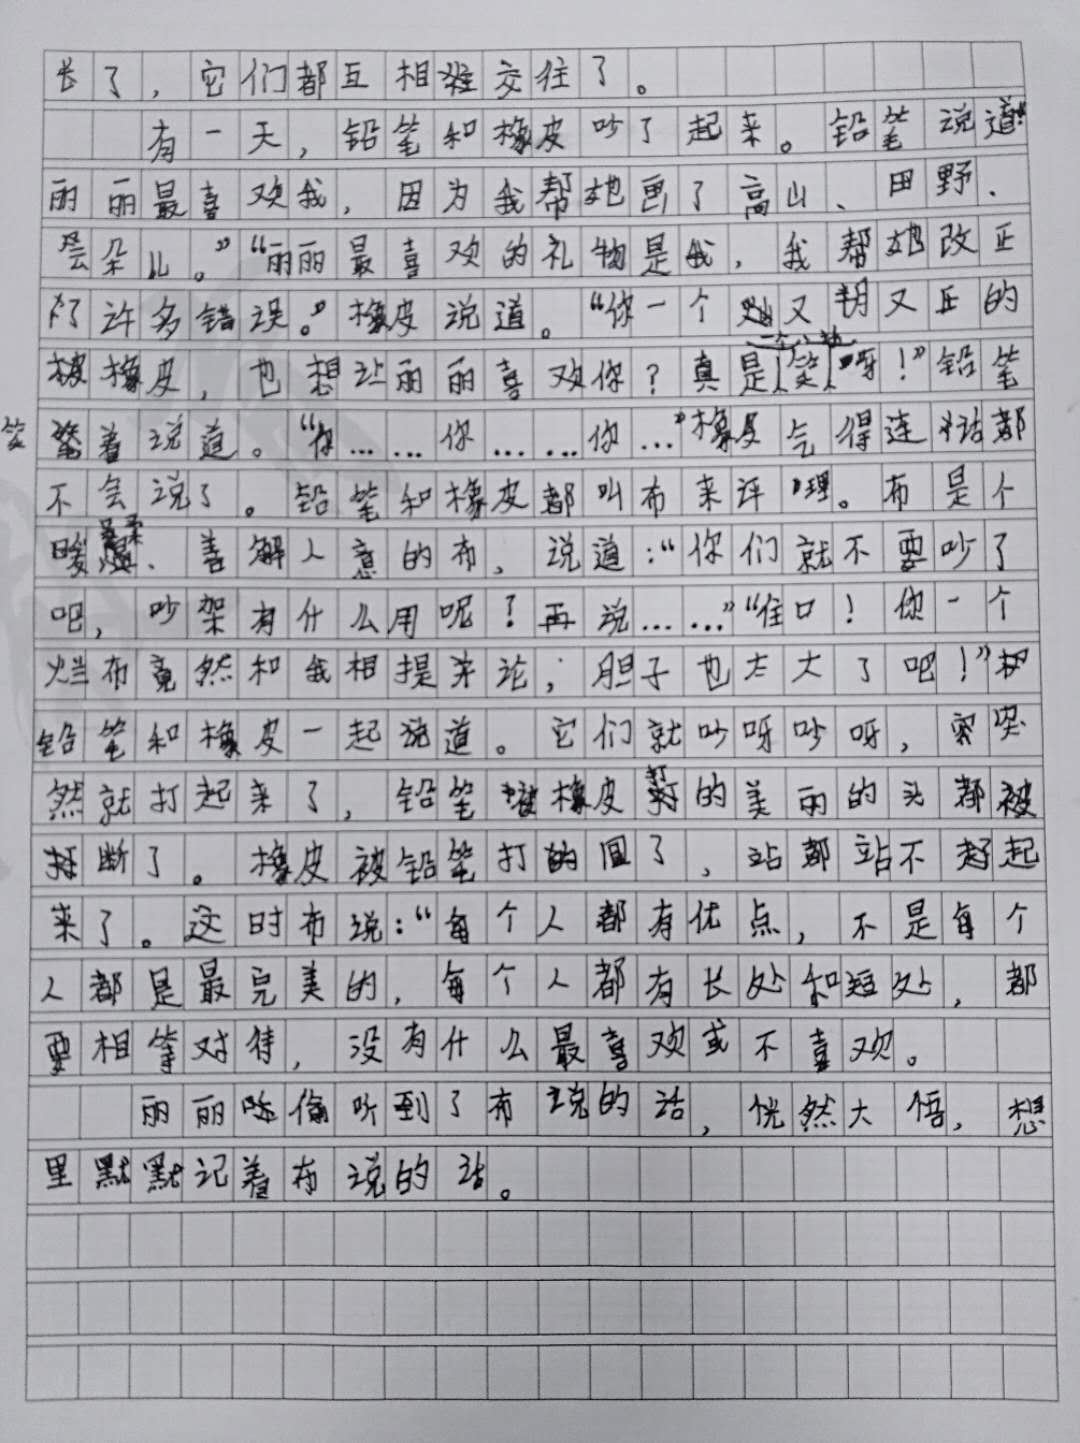 长了，它们都互相难交往了。
有一天，铅笔和橡皮吵了起来。铅笔说道“
丽丽最喜欢我，因为我帮她画了高山、田野、
云朵儿。”“丽丽最喜欢的礼物是我，我帮她改正
了许多错误。”橡皮说道。“你一个又又正的
橡皮，也想让丽丽喜欢你？真是笑呀！”铅笔
笑着说道。“你……你……你…”橡皮气得连话都
不会说了。铅笔和橡皮都叫布来评理。布是个
温柔、善解人意的布，说道：“你们就不要吵了
吧，吵架有什么用呢？再说……”“住口！你一个
烂布竟然和我相提并论；胆子也太大了吧！”
铅笔和橡皮一起说道。它们就吵呀吵呀，突
然就打起来了，铅笔被橡皮打的美丽的头都被
打断了。橡皮被铅笔打的圆了，站都站不起
来了。这时布说：“每个人都有优点，不是每个
人都是最完美的，每个人都有长处和短处，都
要相等对待，没有什么最喜欢或不喜欢。
丽丽偷听到了布说的话，恍然大悟，想
里默默记着布说的话。